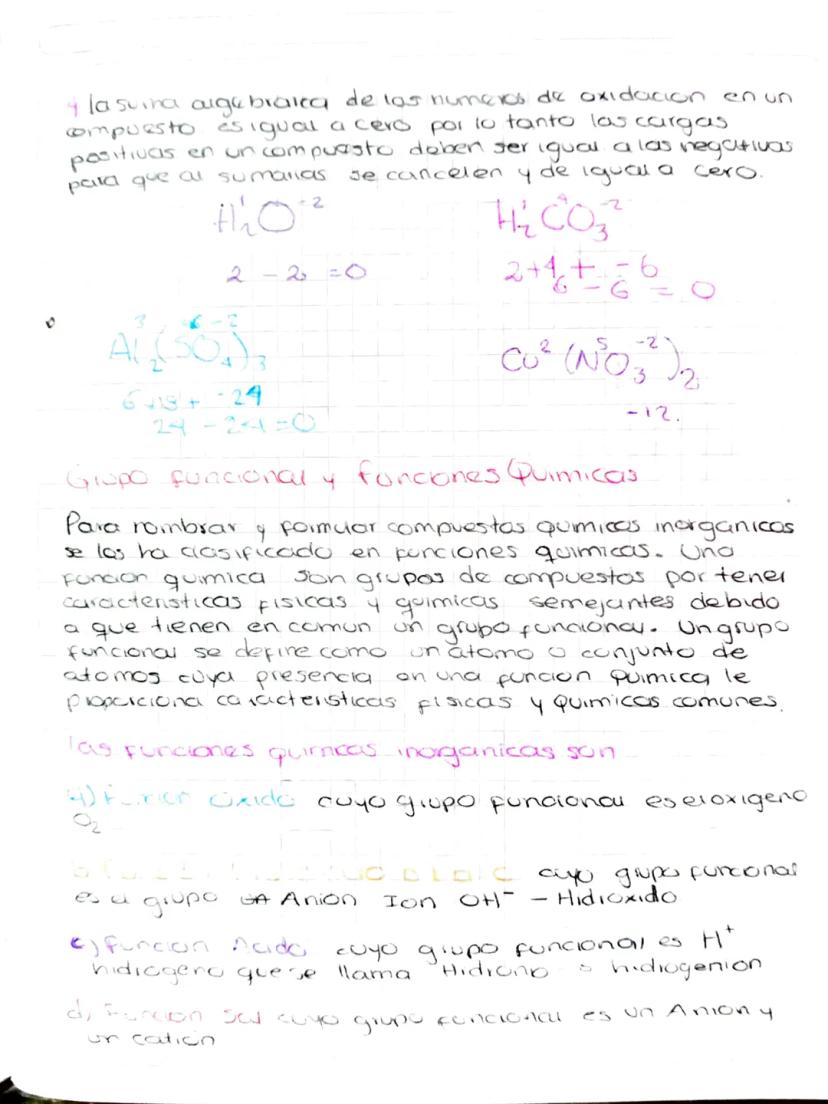 4 la suma algebraica de los numeros de oxidacion en un
compuesto es igual a cero por lo tanto las cargas
positivas en un compuesto deben ser igual a las negativas
para que al sumarlas se cancelen y de igual a cero.
H₂¹O⁻² H₂¹C⁴O₃⁻²
2 - 2 = 0 2+4 + -6
6 - 6 = 0
Al₂³(S⁶O₄⁻²)₃ Cu²(N⁵O₃⁻²)₂
6+18+ -24 -12.
24 - 24 = 0
Grupo funcional y funciones Quimicas
Para nombrar y formular compuestos quimicos inorganicos
se los ha clasificado en funciones quimicas. Una
funcion quimica son grupos de compuestos por tener
caracteristicas fisicas y quimicas semejantes debido
a que tienen en comun un grupo funcional. Un grupo
funcional se define como un atomo o conjunto de
atomos cuya presencia en una funcion Quimica le
proporciona caracteristicas fisicas y Quimicas comunes.
las funciones quimicas inorganicas son
a) Funcion Oxido cuyo grupo funcional es el oxigeno
O₂
cuyo grupo funcional
es el grupo Anion Ion OH⁻ - Hidroxido
c) Funcion Acido cuyo grupo funcional es H⁺
hidrogeno que se llama Hidrono o hidrogenion
d) Funcion Sal cuyo grupo funcional es un Anion y
un cation